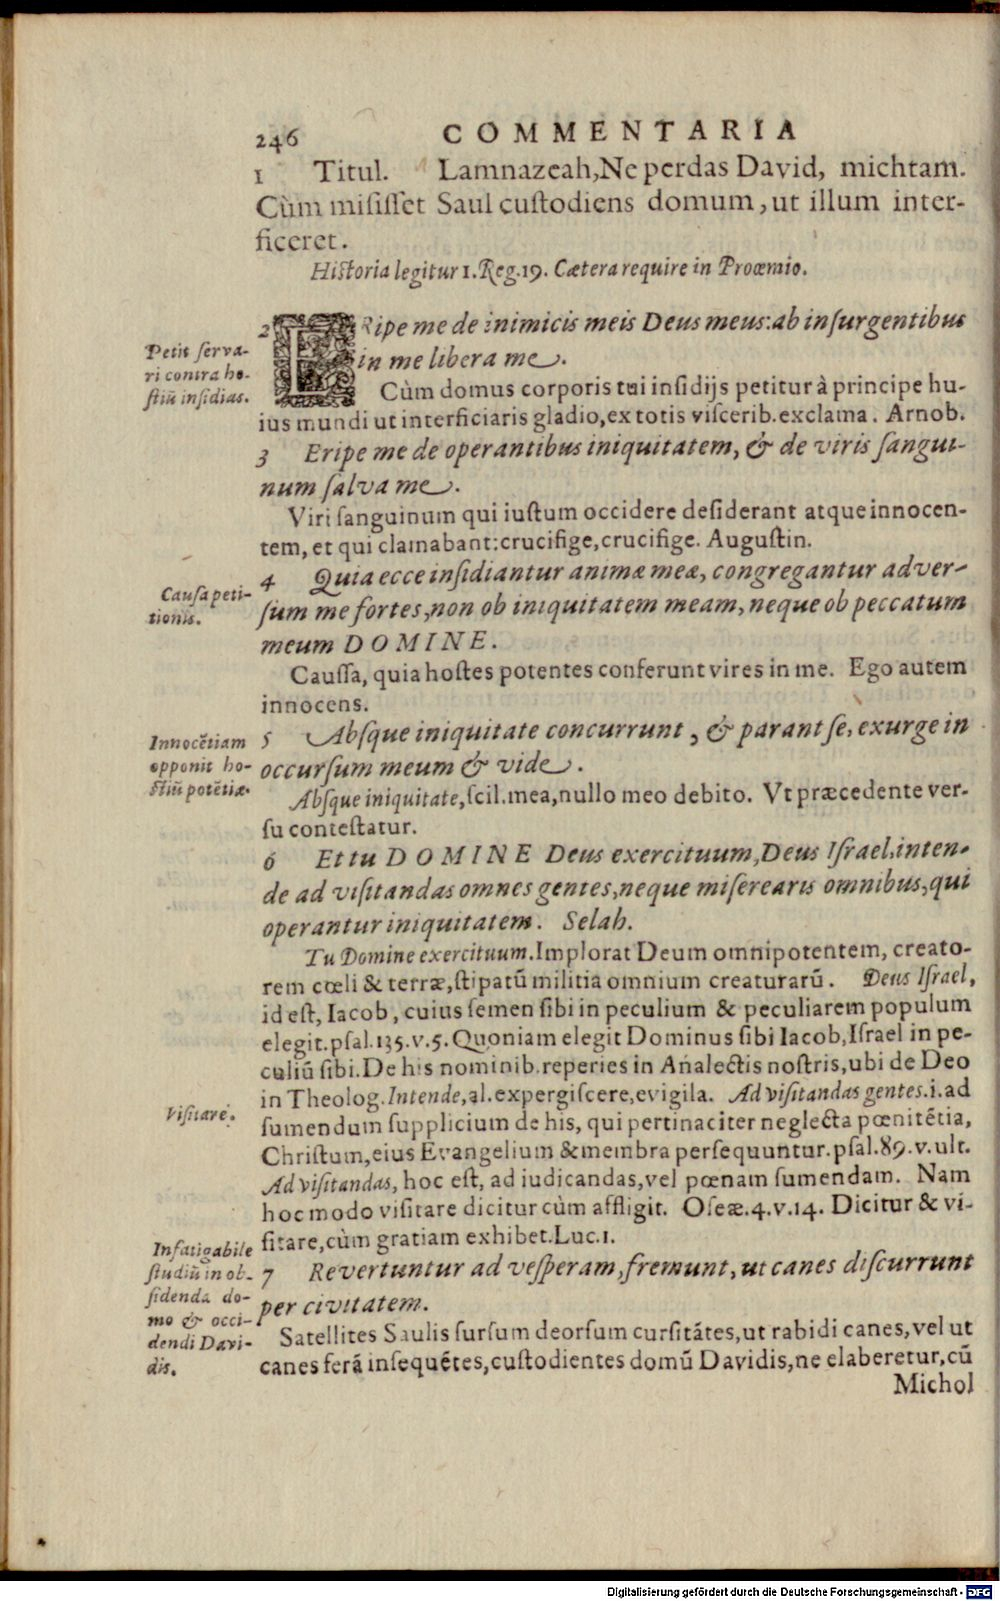 246 COMMENTARIA
1 Titul. Lamnazeah, Ne perdas David, michtam.
Cùm misisset Saul custodiens domum, ut illum inter-
ficeret.
Historia legitur 1. Reg. 19. Cætera require in Proœmio.
2 ERipe me de inimicis meis Deus meus: ab insurgentibus
in me libera me.
Petit serva-
ri contra ho-
stiũ insidias.
Cùm domus corporis tui insidijs petitur à principe hu-
ius mundi ut interficiaris gladio, ex totis viscerib. exclama. Arnob.
3 Eripe me de operantibus iniquitatem, & de viris sangui-
num salva me.
Viri sanguinum qui iustum occidere desiderant atque innocen-
tem, et qui clamabant: crucifige, crucifige. Augustin.
Causa peti-
tionis.
4 Quia ecce insidiantur animæ meæ, congregantur adver-
sum me fortes, non ob iniquitatem meam, neque ob peccatum
meum DOMINE.
Caussa, quia hostes potentes conferunt vires in me. Ego autem
innocens.
Innocẽtiam
opponit ho-
stiũ potẽtiæ.
5 Absque iniquitate concurrunt, & parant se, exurge in
occursum meum & vide.
Absque iniquitate, scil. mea, nullo meo debito. Vt præcedente ver-
su contestatur.
6 Et tu DOMINE Deus exercituum, Deus Israel, inten-
de ad visitandas omnes gentes, neque miserearis omnibus, qui
operantur iniquitatem. Selah.
Tu Domine exercituum. Implorat Deum omnipotentem, creato-
rem cœli & terræ, stipatũ militia omnium creaturarũ. Deus Israel,
id est, Iacob, cuius semen sibi in peculium & peculiarem populum
elegit. psal. 135. v. 5. Quoniam elegit Dominus sibi Iacob, Israel in pe-
culiũ sibi. De his nominib. reperies in Analectis nostris, ubi de Deo
in Theolog. Intende, al. expergiscere, evigila. Ad visitandas gentes. i. ad
Visitare.
sumendum supplicium de his, qui pertinaciter neglecta pœnitẽtia,
Christum, eius Evangelium & membra persequuntur. psal. 89. v. ult.
Ad visitandas, hoc est, ad iudicandas, vel pœnam sumendam. Nam
hoc modo visitare dicitur cùm affligit. Oseæ. 4. v. 14. Dicitur & vi-
sitare, cùm gratiam exhibet. Luc. 1.
Infatigabile
studiũ in ob-
sidenda do-
mo & occi-
dendi Davi-
dis.
7 Revertuntur ad vesperam, fremunt, ut canes discurrunt
per civitatem.
Satellites Saulis sursum deorsum cursitãtes, ut rabidi canes, vel ut
canes ferã insequẽtes, custodientes domũ Davidis, ne elaberetur, cũ
Michol
Digitalisierung gefördert durch die Deutsche Forschungsgemeinschaft - DFG